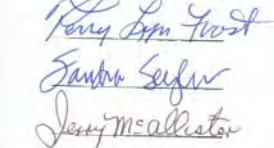 Perry Lynn Frost
Sandra
Jerry McAllister